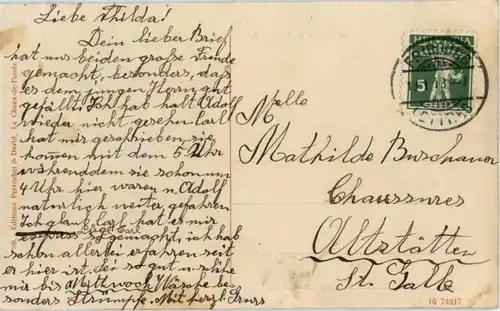 Liebe Thilda!
Dein lieber Brief
hat uns beiden große Freude
gemacht, besonders, daß
es dem jungen Herrn gut
gefällt. Ich hab halt Adolf
wieder nicht gesehen Carl
hat mir geschrieben sie
kommen mit dem 5 Uhr
währenddem sie schon um
4 Uhr hier waren u. Adolf
natürlich weiter gefahren
Ich glaub Carl hat es mir
express gemacht, ich hab
schon allerlei erfahren seit
er hier ist. Sei so gut u.
mir bis Mittwoch Wäsche be-
sonders Strümpfe. Mit herzl. Gruss
Mlle
Mathilde Buschauer
Chaussures
Altstätten
St. Galle
Editions Perrochet & David, La Chaux-de-Fonds
10 74617
5